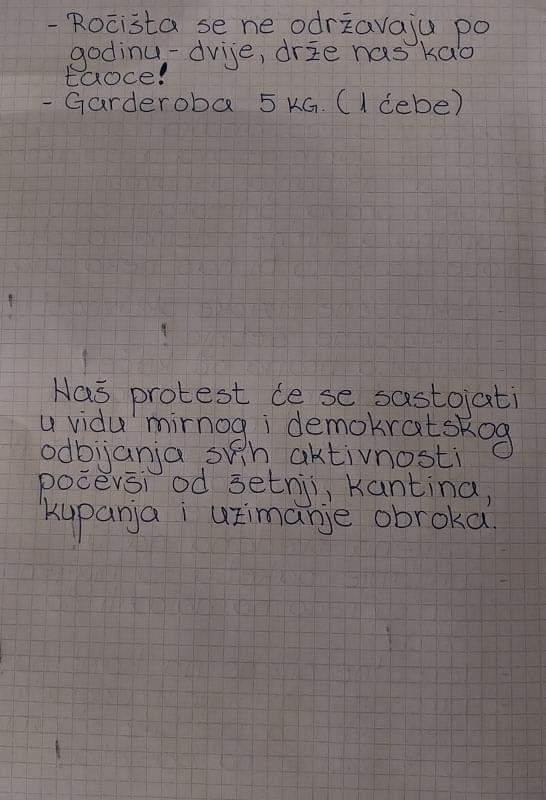 - Ročišta se ne održavaju po
godinu - dvije, drže nas kao
taoce!
- Garderoba 5 KG. (1 ćebe)
Naš protest će se sastojati
u vidu mirnog i demokratskog
odbijanja svih aktivnosti
počevši od šetnji, kantina,
kupanja i uzimanje obroka.